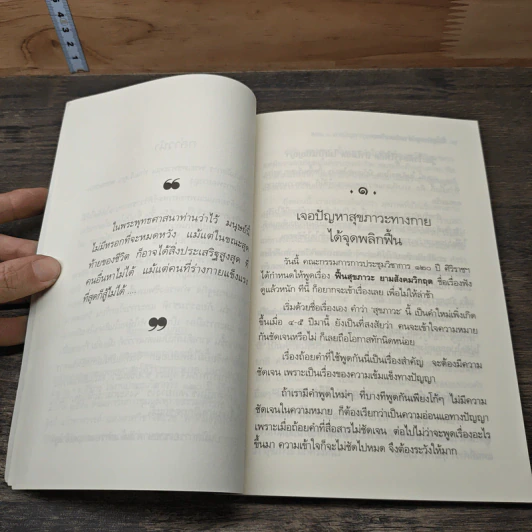 4
3
2
❝
ในพระพุทธศาสนาท่านว่าไว้ มนุษย์นี้
ไม่มีหรอกที่จะหมดหวัง แม้แต่ในขณะสุด
ท้ายของชีวิต ก็อาจได้สิ่งประเสริฐสูงสุด ที่
คนอื่นหาไม่ได้ แม้แต่คนที่ร่างกายแข็งแรง
ที่สุดก็สู้ไม่ได้ ...
❞
• ๑ •
เจอปัญหาสุขภาวะทางกาย
ได้จุดพลิกฟื้น
วันนี้ คณะกรรมการการประชุมวิชาการ ๑๒๐ ปี ศิริราชฯ
ได้กำหนดให้พูดเรื่อง ฟื้นสุขภาวะ ยามสังคมวิกฤต ชื่อเรื่องฟัง
ดูแล้วหนัก ทีนี้ ก็อยากจะเข้าเรื่องเลย เพื่อไม่ให้ล่าช้า
เริ่มด้วยชื่อเรื่องเอง คำว่า 'สุขภาวะ' นี้ เป็นคำใหม่เพิ่งเกิด
ขึ้นเมื่อ ๔-๕ ปีมานี้ ยังเป็นที่สงสัยว่า คนจะเข้าใจความหมาย
กันชัดเจนหรือไม่ ก็เลยถือโอกาสทักนิดหน่อย
เรื่องถ้อยคำที่ใช้พูดกันนี้เป็นเรื่องสำคัญ จะต้องมีความ
ชัดเจน เพราะเป็นเรื่องของความเข้มแข็งทางปัญญา
ถ้าเรามีคำพูดใหม่ๆ ที่บางทีพูดกันเพียงโก้ๆ ไม่มีความ
ชัดเจนในความหมาย ก็ต้องเรียกว่าเป็นความอ่อนแอทางปัญญา
เพราะเมื่อถ้อยคำที่สื่อสารไม่ชัดเจน ต่อไปไม่ว่าจะพูดเรื่องอะไร
ขึ้นมา ความเข้าใจก็จะไม่ชัดไปหมด จึงต้องระวังให้มาก